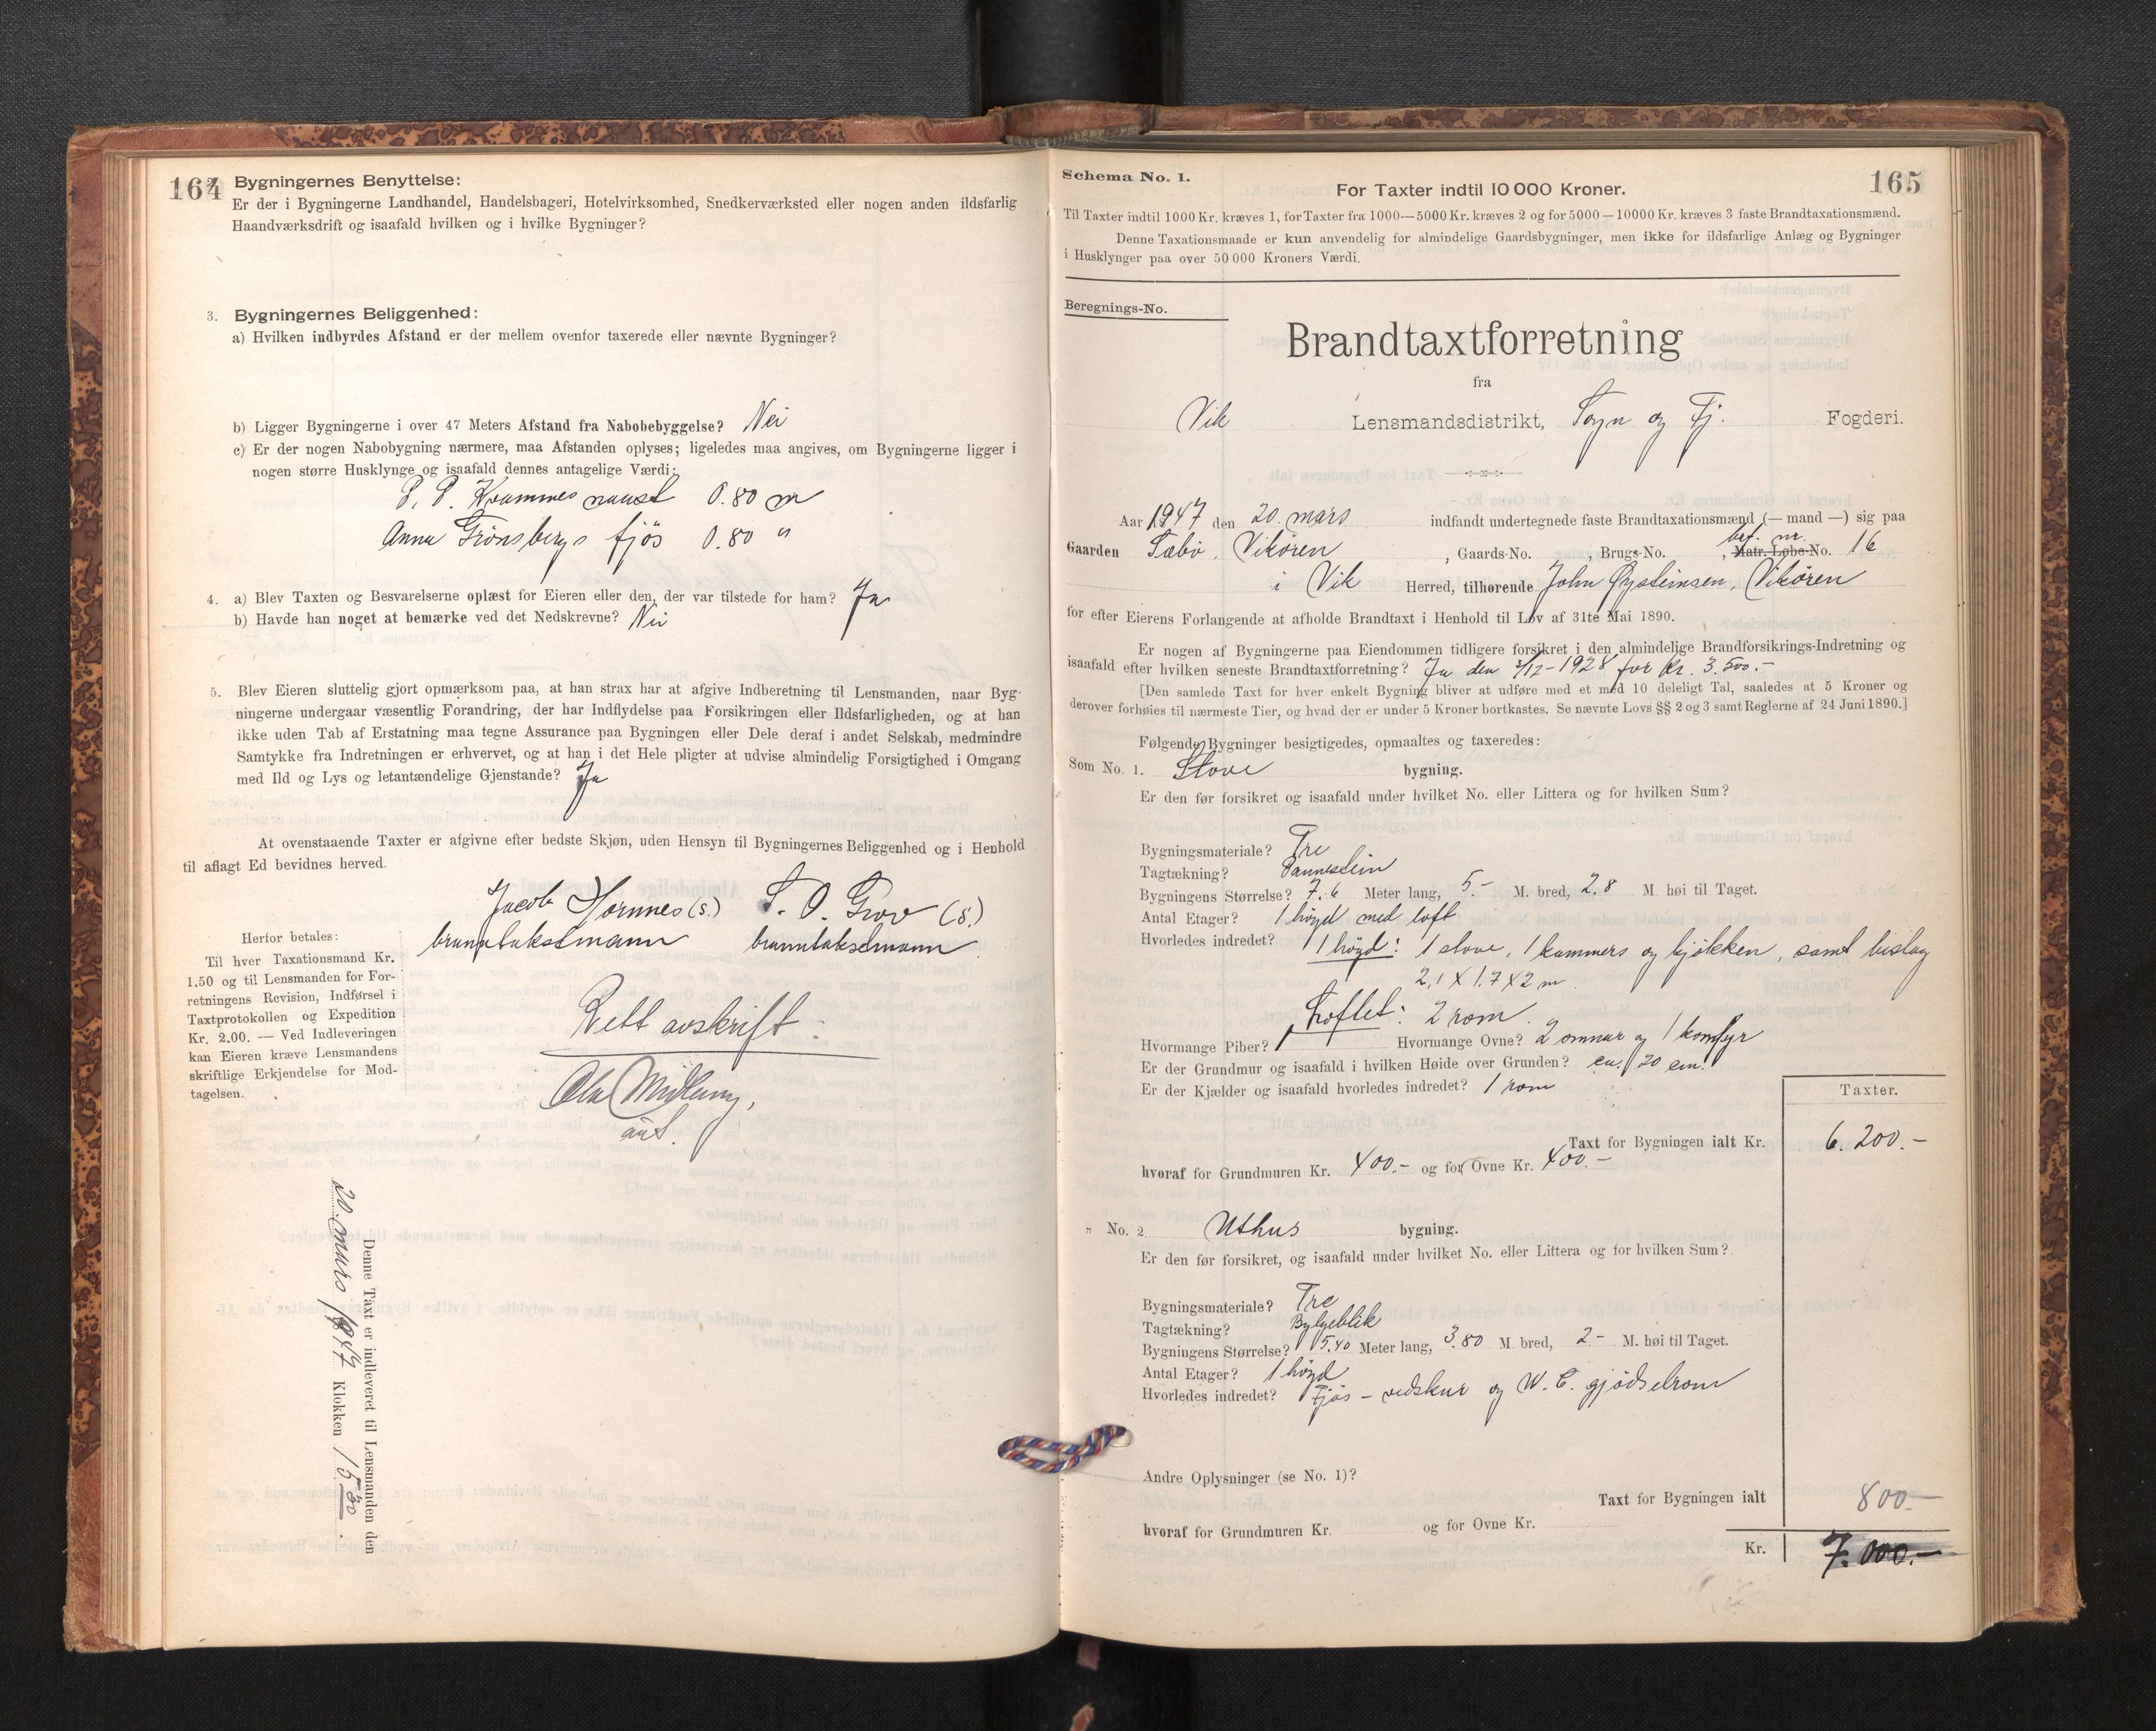 164
2. Bygningernes Benyttelse:
Er der i Bygningerne Landhandel, Handelsbageri, Hotelvirksomhed, Snedkerværksted eller nogen anden ildsfarlig
Haandværksdrift og isaafald hvilken og i hvilke Bygninger?
3. Bygningernes Beliggenhed:
a) Hvilken indbyrdes Afstand er der mellem ovenfor taxerede eller nævnte Bygninger?
b) Ligger Bygningerne i over 47 Meters Afstand fra Nabobebyggelse? Nei
c) Er der nogen Nabobygning nærmere, maa Afstanden oplyses; ligeledes maa angives, om Bygningerne ligger i
nogen større Husklynge og isaafald dennes antagelige Værdi:
P. P. Hrammes naust 0.80 m
Anna Grønsbergs fjös 0.80 "
4. a) Blev Taxten og Besvarelserne oplæst for Eieren eller den, der var tilstede for ham? Ja
b) Havde han noget at bemærke ved det Nedskrevne? Nei
5. Blev Eieren sluttelig gjort opmærksom paa, at han strax har at afgive Indberetning til Lensmanden, naar Byg-
ningerne undergaar væsentlig Forandring, der har Indflydelse paa Forsikringen eller Ildsfarligheden, og at han
ikke uden Tab af Erstatning maa tegne Assurance paa Bygningen eller Dele deraf i andet Selskab, medmindre
Samtykke fra Indretningen er erhvervet, og at han i det Hele pligter at udvise almindelig Forsigtighed i Omgang
med Ild og Lys og letantændelige Gjenstande? Ja
At ovenstaaende Taxter er afgivne efter bedste Skjøn, uden Hensyn til Bygningernes Beliggenhed og i Henhold
til aflagt Ed bevidnes herved.
Jacob Hormnes (s.) S. O. Grov (s.)
branntakstmann branntakstmann
Herfor betales:
Til hver Taxationsmand Kr.
1.50 og til Lensmanden for For-
retningens Revision, Indførsel i
Taxtprotokollen og Expedition
Kr. 2.00. — Ved Indleveringen
kan Eieren kræve Lensmandens
skriftlige Erkjendelse for Mod-
tagelsen.
Rett avskrift:
Ola Midlang,
aut.
Denne Taxt er indleveret til Lensmanden den
20. mars 1947 Klokken 15 30.
165
Schema No. 1.
For Taxter indtil 10 000 Kroner.
Til Taxter indtil 1000 Kr. kræves 1, for Taxter fra 1000—5000 Kr. kræves 2 og for 5000—10000 Kr. kræves 3 faste Brandtaxationsmænd.
Denne Taxationsmaade er kun anvendelig for almindelige Gaardsbygninger, men ikke for ildsfarlige Anlæg og Bygninger
i Husklynger paa over 50 000 Kroners Værdi.
Beregnings-No.
Brandtaxtforretning
fra
Vik Lensmandsdistrikt, Sogn og Fj. Fogderi.
Aar 1947 den 20. mars indfandt undertegnede faste Brandtaxationsmænd (— mand —) sig paa
Gaarden Sæbö, Vikören, Gaards-No. , Brugs-No. , Matr. Løbe-No. bef. nr. 16
i Vik Herred, tilhørende John Øysteinsen, Vikören
for efter Eierens Forlangende at afholde Brandtaxt i Henhold til Lov af 31te Mai 1890.
Er nogen af Bygningerne paa Eiendommen tidligere forsikret i den almindelige Brandforsikrings-Indretning og
isaafald efter hvilken seneste Brandtaxtforretning? Ja den 3/12-1928 for kr. 3.500.-
[Den samlede Taxt for hver enkelt Bygning bliver at udføre med et med 10 deleligt Tal, saaledes at 5 Kroner og
derover forhøies til nærmeste Tier, og hvad der er under 5 Kroner bortkastes. Se nævnte Lovs §§ 2 og 3 samt Reglerne af 24 Juni 1890.]
Følgende Bygninger besigtigedes, opmaaltes og taxeredes:
Som No. 1. Stove bygning.
Er den før forsikret og isaafald under hvilket No. eller Littera og for hvilken Sum?
Bygningsmateriale? Tre
Tagtækning? Pannestein
Bygningens Størrelse? 7.6 Meter lang, 5.- M. bred, 2.8 M. høi til Taget.
Antal Etager? 1 höyd med loft
Hvorledes indredet? 1 höyd: 1 stove, 1 kammers og kjökken, samt bislag
2,1 x 1,7 x 2 m.
Loftet: 2 rom.
Hvormange Piber? 1 Hvormange Ovne? 2 omnar og 1 komfyr
Er der Grundmur og isaafald i hvilken Høide over Grunden? ca. 70 cm.
Er der Kjælder og isaafald hvorledes indredet? 1 rom
Taxter.
Taxt for Bygningen ialt Kr. 6.200.-
hvoraf for Grundmuren Kr. 400.- og for Ovne Kr. 400.-
" No. 2 Uthus bygning.
Er den før forsikret, og isaafald under hvilket No. eller Littera og for hvilken Sum?
Bygningsmateriale? Tre
Tagtækning? Bylgeblik
Bygningens Størrelse? 5.40 Meter lang, 3.80 M bred, 2- M. høi til Taget.
Antal Etager? 1 höyd
Hvorledes indredet? Fjös - vedskur og W. C. gjödselrom
Andre Oplysninger (se No. 1)?
Taxt for Bygningen ialt 800.-
hvoraf for Grundmuren Kr. og for Ovne Kr.
Kr. 7.000.-